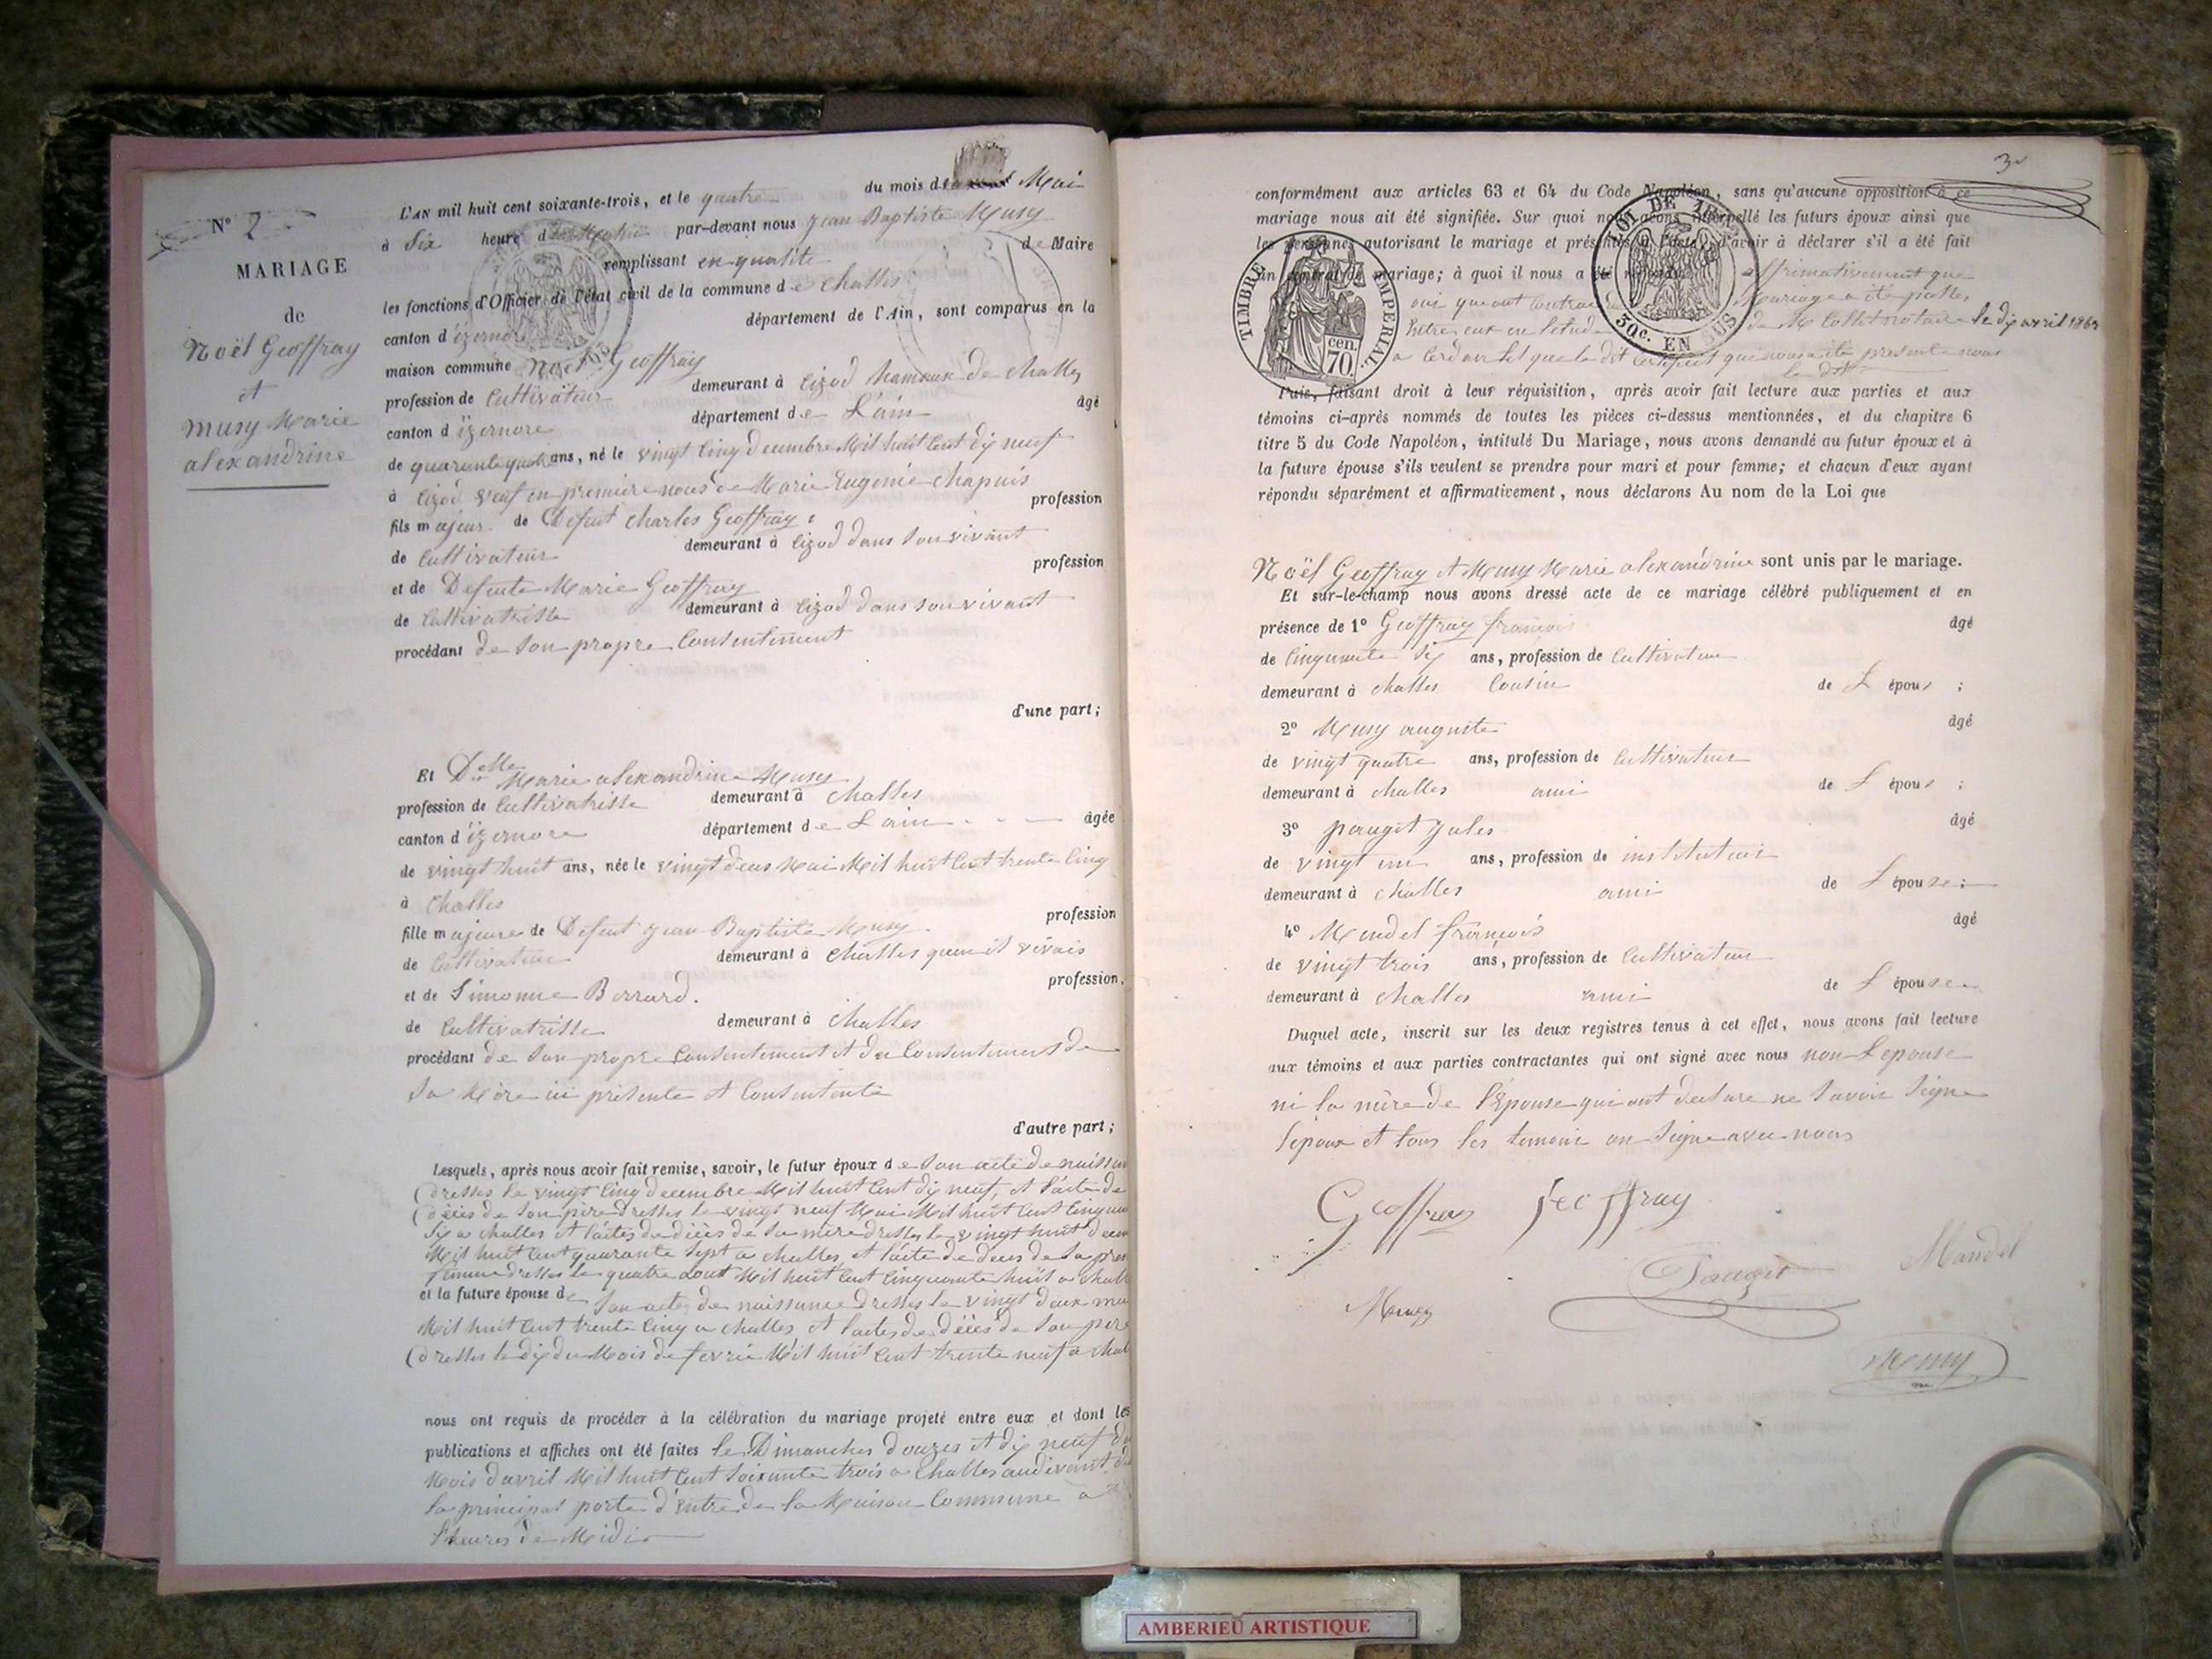 N° 2
MARIAGE
de
Noël Geoffray
et
musy Marie
alexandrine
L'AN mil huit cent soixante-trois, et le quatre du mois de Mai
à Six heure du Matin par-devant nous jean Baptiste Musy
remplissant en qualité de Maire
les fonctions d'Officier de l'état civil de la commune de challes
canton d'izernore département de l'Ain, sont comparus en la
maison commune Noël Geoffray
profession de Cultivateur demeurant à Cizod hameaux de challes
canton d'izernore département de L'ain âgé
de quarante quatre ans, né le vingt Cinq decembre Mil huit Cent dix neuf
à Cizod veuf en premiere noces de Marie Eugenie chapuis
fils majeur de Defunt charles Geoffray profession
de Cultivateur demeurant à Cizod dans son vivant
et de Defunte Marie Geoffray profession
de Cultivatrisse demeurant à Cizod dans son vivant
procédant de son propre Consentement
d'une part;
Et Delle Marie alexandrine Musy
profession de Cultivatrisse demeurant à challes
canton d'izernore département de L'ain âgée
de vingt huit ans, née le vingt deux Mai Mil huit Cent trente Cinq
à Challes
fille majeure de Defunt jean Baptiste Musy profession
de Cultivateur demeurant à challes quand il vivais
et de Simonne Berrard. profession
de Cultivatrisse demeurant à challes
procédant de son propre Consentement et du Consentement de
sa Mère ici présente et Consentente
d'autre part;
Lesquels, après nous avoir fait remise, savoir, le futur époux de son acte de naissan
dresses le vingt Cinq decembre Mil huit Cent dix neuf, et l'acte de
décès de son père dresses le vingt neuf Mai Mil huit Cent Cinquan
six a challes et l'actes de décès de sa mère dresses le vingt huit decem
Mil huit Cent quarante sept a challes et l'acte de deces de sa prem
femme dresses le quatre aout Mil huit Cent Cinquante huit a chall
et la future épouse de son actes de naissance dresses le vingt deux mai
Mil huit Cent trente Cinq a challes, et l'actes de décès de son pere
dresses le dix du Mois de fevrié Mil huit Cent trente neuf a chal
nous ont requis de procéder à la célébration du mariage projeté entre eux et dont les
publications et affiches ont été faites le Dimanches douzes et dix neuf du
Mois davril Mil huit Cent Soixante trois a Challes audivant de
la principal porte d'entre de la Maison Commune a
l'heures de Midi
3
conformément aux articles 63 et 64 du Code Napoléon, sans qu'aucune opposition à ce
mariage nous ait été signifiée. Sur quoi nous avons interpellé les futurs époux ainsi que
les personnes autorisant le mariage et présentes à l'acte, d'avoir à déclarer s'il a été fait
un contrat de mariage; à quoi il nous a été répondu affirmativement que
oui que ont Contra Mariage a été passes
Entre eux en l'etude de M Collet notaire le dix avril 1863
a Cerdon tel que le dit Certificat qui nous a été presente nous
le dit
TIMBRE IMPERIAL
70 cen.
LOI DE 18
30c. EN SUS
Puis, faisant droit à leur réquisition, après avoir fait lecture aux parties et aux
témoins ci-après nommés de toutes les pièces ci-dessus mentionnées, et du chapitre 6
titre 5 du Code Napoléon, intitulé Du Mariage, nous avons demandé au futur époux et à
la future épouse s'ils veulent se prendre pour mari et pour femme; et chacun d'eux ayant
répondu séparément et affirmativement, nous déclarons Au nom de la Loi que
Noël Geoffray et Musy Marie alexandrine sont unis par le mariage.
Et sur-le-champ nous avons dressé acte de ce mariage célébré publiquement et en
présence de 1° Geoffray françois âgé
de Cinquante six ans, profession de Cultivateur
demeurant à challes Cousin de L époux ;
2° Musy auguste âgé
de vingt quatre ans, profession de Cultivateur
demeurant à challes ami de L époux ;
3° pauget jules âgé
de vingt un ans, profession de instituteur
demeurant à challes ami de L épouse ;
4° Mandel françois âgé
de vingt trois ans, profession de Cultivateur
demeurant à challes ami de L épouse
Duquel acte, inscrit sur les deux registres tenus à cet effet, nous avons fait lecture
aux témoins et aux parties contractantes qui ont signé avec nous non Lepouse
ni la mère de l'Epouse qui ont declare ne savoir signe
lepoux et tous les temoin on signe avec nous
Geoffray jeoffray
Pauget Mandel
Musy
Musy
AMBERIEU ARTISTIQUE